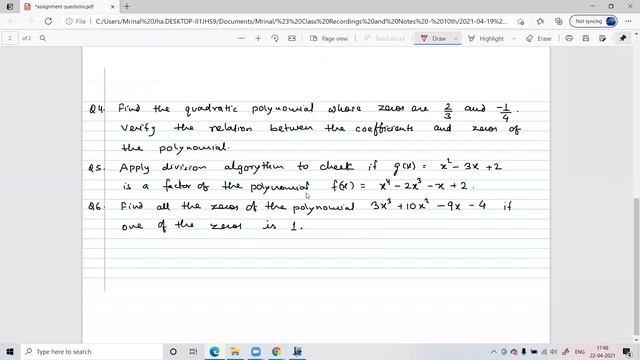 *assignment questions.pdf
File | C:/Users/Mrinal%20Jha.DESKTOP-II1JHS9/Documents/Mrinal/%23%20Class%20Recordings%20and%20Notes%20-%2010th/2021-04-19%2...
Not syncing
2 of 2
Read aloud
Draw
Highlight
Erase
Q4. Find the quadratic polynomial whose zeros are 2/3 and -1/4.
Verify the relation between the coefficients and zeros of
the polynomial.
Q5. Apply division algorythm to check if g(x) = x² - 3x + 2
is a factor of the polynomial f(x) = x⁴ - 2x³ - x + 2.
Q6. Find all the zeros of the polynomial 3x³ + 10x² - 9x - 4 if
one of the zeros is 1.
Type here to search
ENG
17:48
22-04-2021